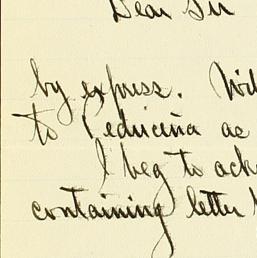 Dear Sir
by express. Wil
to Peduceña as
I beg to ack
containing letter